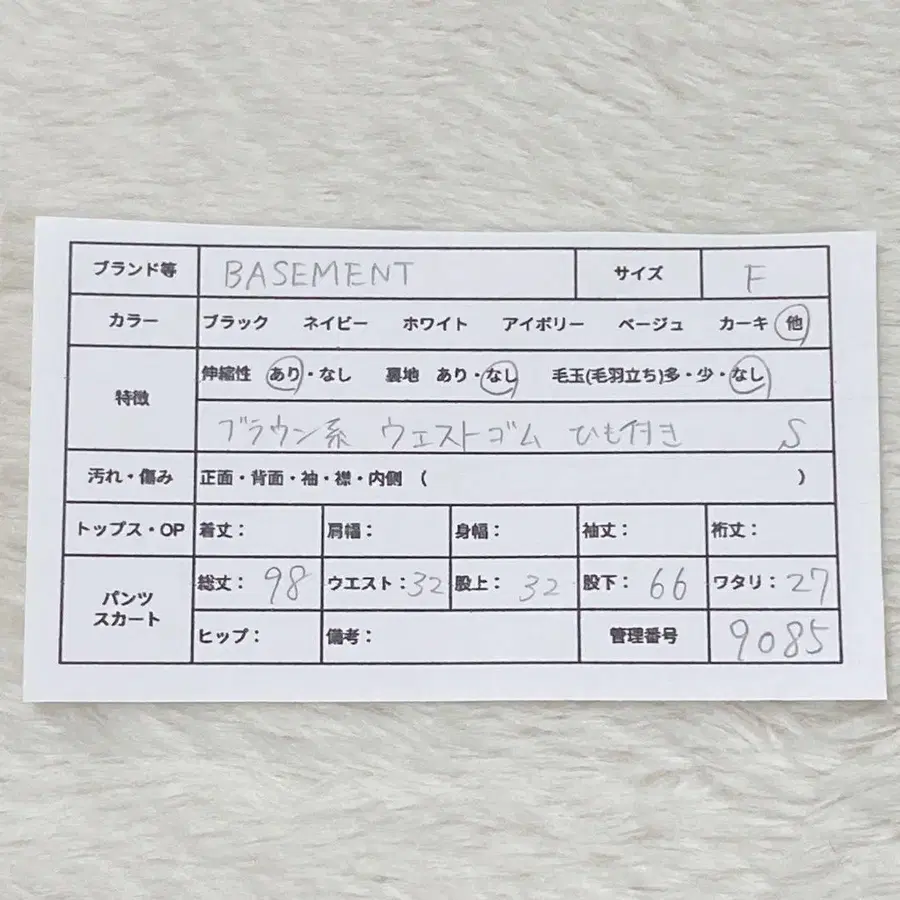 ブランド等 BASEMENT サイズ F
カラー ブラック ネイビー ホワイト アイボリー ベージュ カーキ 他
特徴 伸縮性 あり・なし 裏地 あり・なし 毛玉(毛羽立ち)多・少・なし
ブラウン系 ウエストゴム ひも付き S
汚れ・傷み 正面・背面・袖・襟・内側 ( )
トップス・OP 着丈: 肩幅: 身幅: 袖丈: 裄丈:
パンツ スカート 総丈: 98 ウエスト:32 股上: 32 股下: 66 ワタリ:27
ヒップ: 備考: 管理番号 9085